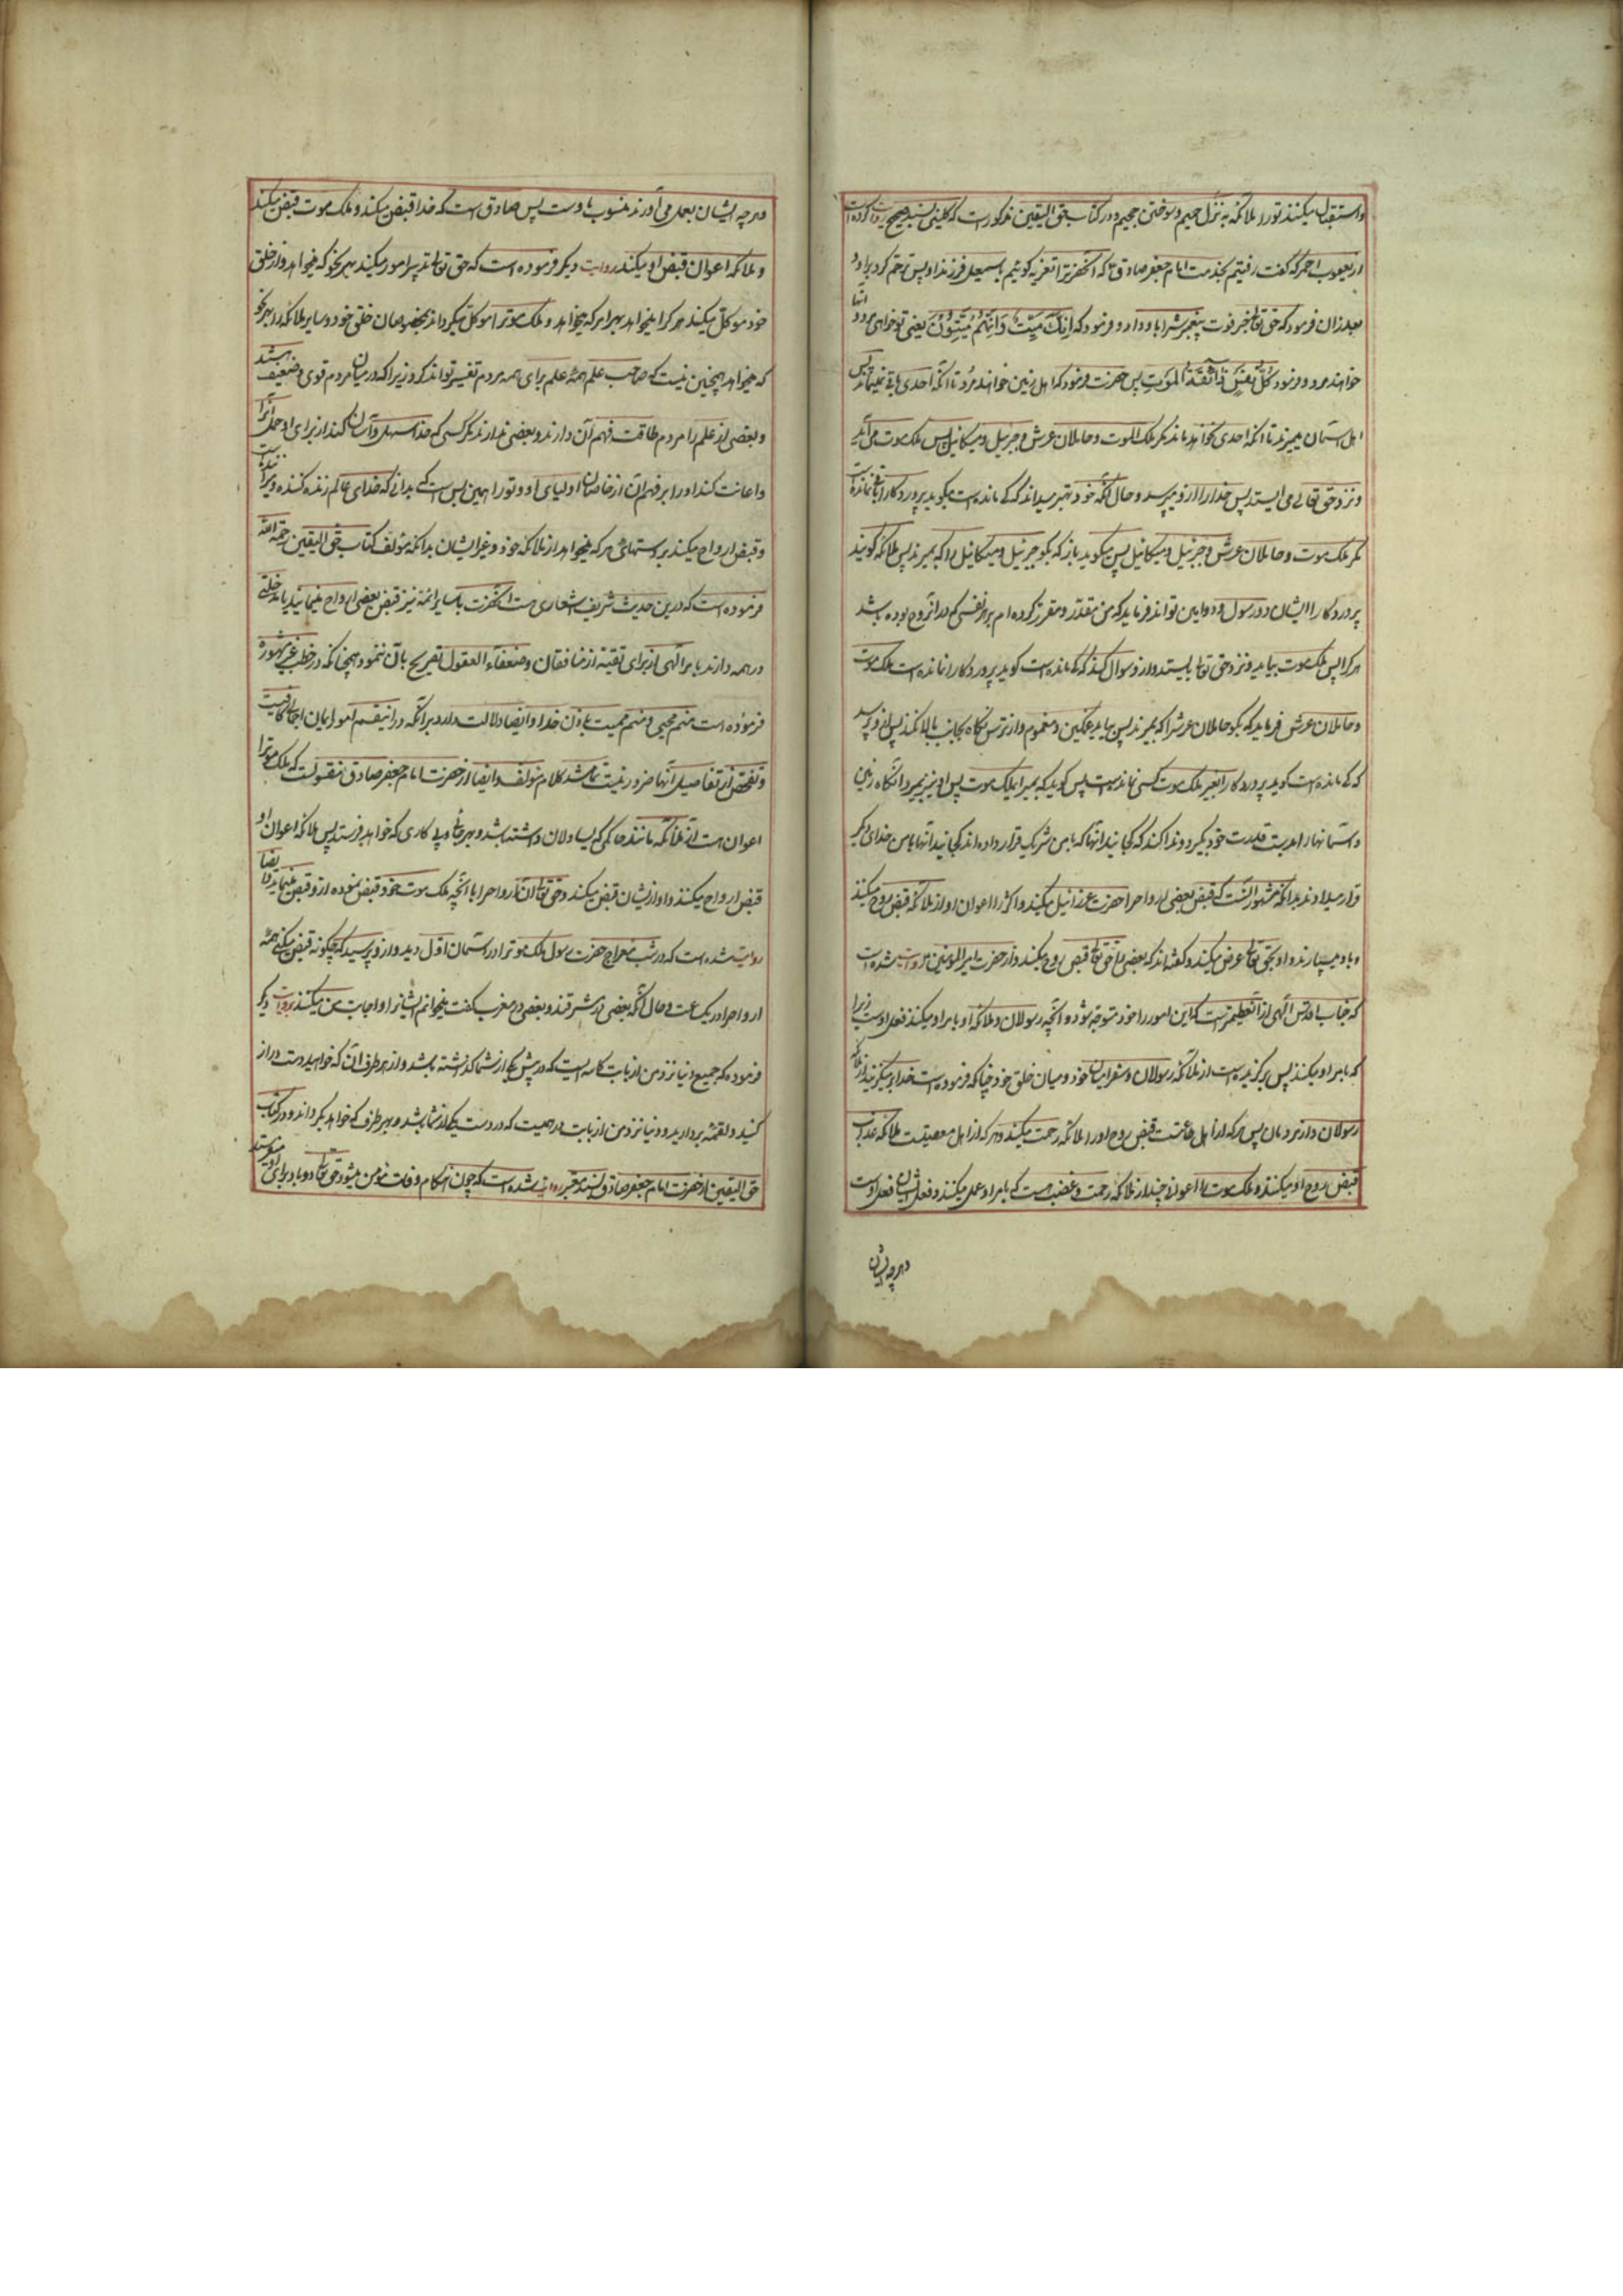 و استقبال میکنند تورا ملائکه به نزل حمیم و سوختن جحیم و در کتاب حق الیقین مذکورست که کلینی بسند صحیح روایت کرده است
از یعقوب احمر که گفت رفتیم بخدمت امام جعفر صادق ع که آنحضرترا تعزیه گوئیم باسمعیل فرزند او پس ترحم کرد براو و
بعد ازان فرمود که حق تعالی خبر فوت پیغمبرش را باو داد و فرمود که اِنَّکَ مَیِّتٌ وَ اِنَّهُمْ مَیِّتُوْنَ یعنی تو خواهی مرد و آنها
خواهند مرد و فرمود کُلُّ نَفْسٍ ذَائِقَةُ الْمَوْتِ پس حضرت فرمود که اهل زمین خواهند مرد تا آنکه احدی باقی نمیماند پس
اهل آسمان میمیرند تا آنکه احدی نخواهد ماند مگر ملک الموت و حاملان عرش و جبرئیل و میکائیل پس ملک موت می آید
و نزد حق تعالی می ایستد پس خدا ازو میپرسد و حال آنکه خود بهتر میداند که کی مانده است میگوید پروردگارا باقی نمانده است
مگر ملک موت و حاملان عرش و جبرئیل و میکائیل پس میگوید باز که بگو جبرئیل و میکائیل را که بمیرند پس ملائکه گویند
پروردگارا ایشان دو رسول و دو امین تواند فرماید که من مقدر و مقرر کرده ام بر هر نفسی که در او روح بوده باشد
مرگ را پس ملک موت بیاید و نزد حق تعالی بایستد و ازو سوال کند که کی مانده است گوید پروردگارا نمانده است مگر ملک موت
و حاملان عرش فرماید که بگو حاملان عرش را که بمیرند پس بیاید غمگین و مغموم و از ترس نگاه بجانب بالا نکند پس ازو پرسد
که کی مانده است گوید پروردگارا بغیر ملک موت کسی نمانده است پس گوید که بمیر ای ملک موت پس او نیز بمیرد آنگاه زمین
و آسمانها را بدست قدرت خود بگیرد و ندا کند که کجائید آنها که با من شریک قرار داده اند کجائید آنها با من خدای دیگر
قرار میدادند بدانکه مشهور آنست که قبض بعضی ارواح را حضرت عزرائیل میکند و اکثر را اعوان او از ملائکه قبض روح میکنند
و باو میسپارند و او بحق تعالی عرض میکند و گفته اند که بعضی را حق تعالی قبض روح میکند و از حضرت امیرالمومنین ع روایت شده است
که جناب اقدس الهی از آن عظیمترست که این امور را خود متوجه شود و آنچه رسولان و ملائکه او بامر او میکنند فعل اوست زیرا
که بامر او میکنند پس برگزیده است از ملائکه رسولان و سفرا میان خود و میان خلق خود چنانکه فرموده است خدا برمیگزیند از ملائکه
رسولان و از مردمان پس هر که از اهل طاعتست قبض روح او را ملائکه رحمت میکنند و هر که از اهل معصیتست ملائکه عذاب
قبض روح او میکنند و ملک موت را اعوانی چند از ملائکه رحمت و غضب هست که بامر او عمل میکنند و فعل ایشان فعل اوست
و هرچه ایشان
و هرچه ایشان بعمل می آورند منسوب باوست پس صادق است که خدا قبض میکند و ملک موت قبض میکند
و ملائکه اعوان قبض او میکنند روایت دیگر فرموده است که حق تعالی تدبیر امور میکند بهر نحو که میخواهد و از خلق
خود موکل میکند هر کرا میخواهد بهر امر که میخواهد و ملک موت را موکل میگرداند بخصوصان خلق خود و سایر ملائکه را بهر نحو
که میخواهد همچنین نیست که صاحب علم همه علم برای همه مردم تفسیر تواند کرد زیرا که در میان مردم قوی و ضعیف هستند
و بعضی از علم را مردم طاقت فهم آن دارند و بعضی ندارند مگر کسی که خدا سهل و آسان کند از برای او حمل آنرا
و اعانت کند او را بر فهم آن از خاصان اولیای او و تورا همین بس است که بدانی که خدای عالم زنده کننده و میراننده است
و قبض ارواح میکند بر دستهای هر که میخواهد از ملائکه خود و غیر ایشان بدانکه مؤلف کتاب حق الیقین رحمة الله
فرموده است که درین حدیث شریف اشعاری هست آنحضرت با سایر ائمه نیز قبض بعضی ارواح مینمایند یا مدخلتی
در همه دارند بامر الهی از برای تقیه از منافقان و ضعفاء العقول تصریح بآن ننموده چنانکه در خطب غیر مشهوره
فرموده است منم محیی و منم ممیت باذن خدا و ایضا دلالت دارد برآنکه در این قسم امور ایمان اجمالی کافیست
و تفحص از تفاصیل آنها ضرور نیست تمام شد کلام مولف و ایضا از حضرت امام جعفر صادق منقولست که ملک موت را
اعوان هست از ملائکه مانند حاکمی که یساولان داشته باشد و بهر جا و پی کاری که خواهد فرستد پس ملائکه اعوان او
قبض ارواح میکنند و او از ایشان قبض میکند و حق تعالی آن ارواح را با آنچه ملک موت خود قبض نموده ازو قبض مینماید و ایضا
روایت شده است که در شب معراج حضرت رسول ملک موت را در آسمان اول دید و ازو پرسید که چگونه قبض میکنی همه
ارواح را در یک ساعت و حال آنکه بعضی در مشرقند و بعضی در مغرب گفت میخوانم ایشانرا و اجابت من میکنند بروایت دیگر
فرموده که جمیع دنیا نزد من از بابت کاسه ایست که در پیش یکی از شما گذاشته باشد و از هر طرف آن که خواهید دست دراز
کنید و لقمه بردارید و دنیا نزد من از بابت درهمیست که در دست یکی از شما باشد و بهر طرف که خواهد بگرداند و در کتاب
حق الیقین از حضرت امام جعفر صادق بسند معتبر روایت شده است که چون هنگام وفات مؤمن میشود حق تعالی دو باد برای او میفرستد